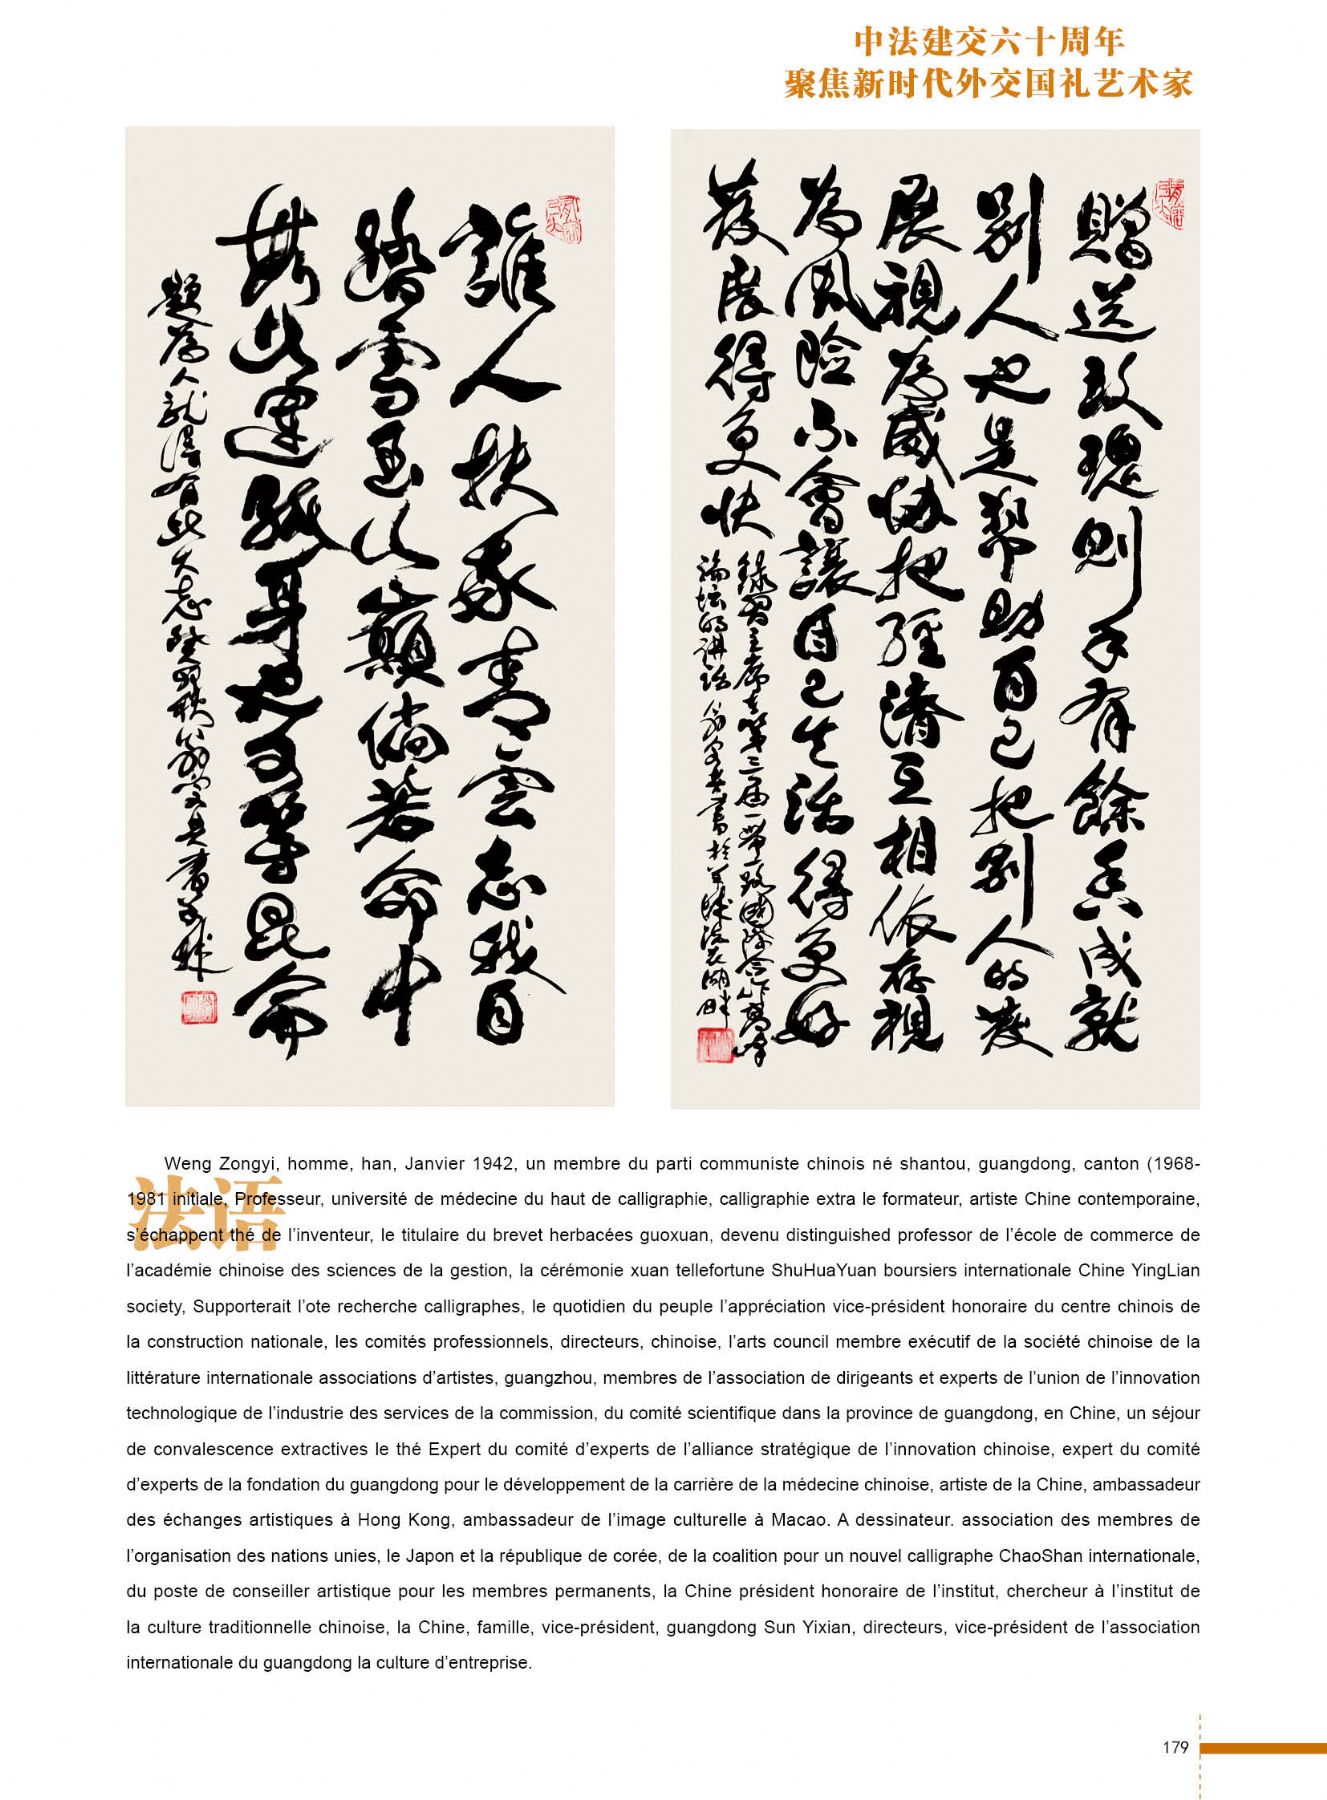 中法建交六十周年
聚焦新时代外交国礼艺术家
誰人扶我青雲志我自
踏雪至山巔倘若命中
無此運孤身也可登昆侖
題為人就得有此大志癸卯秋翁宗奕書羊城
贈送玫瑰則手有餘香成就
別人也是幫助自己把別人的發
展視為威胁把經濟互相依存視
為風险不會讓自己生活得更好
發展得更快
錄習主席在第三届一带一路國際合作高峰
論坛的講話翁宗奕書於羊城流花湖畔
法语
Weng Zongyi, homme, han, Janvier 1942, un membre du parti communiste chinois né shantou, guangdong, canton (1968-
1981 initiale, Professeur, université de médecine du haut de calligraphie, calligraphie extra le formateur, artiste Chine contemporaine,
s’échappent thé de l’inventeur, le titulaire du brevet herbacées guoxuan, devenu distinguished professor de l’école de commerce de
l’académie chinoise des sciences de la gestion, la cérémonie xuan tellefortune ShuHuaYuan boursiers internationale Chine YingLian
society, Supporterait l’ote recherche calligraphes, le quotidien du peuple l’appréciation vice-président honoraire du centre chinois de
la construction nationale, les comités professionnels, directeurs, chinoise, l’arts council membre exécutif de la société chinoise de la
littérature internationale associations d’artistes, guangzhou, membres de l’association de dirigeants et experts de l’union de l’innovation
technologique de l’industrie des services de la commission, du comité scientifique dans la province de guangdong, en Chine, un séjour
de convalescence extractives le thé Expert du comité d’experts de l’alliance stratégique de l’innovation chinoise, expert du comité
d’experts de la fondation du guangdong pour le développement de la carrière de la médecine chinoise, artiste de la Chine, ambassadeur
des échanges artistiques à Hong Kong, ambassadeur de l’image culturelle à Macao. A dessinateur. association des membres de
l’organisation des nations unies, le Japon et la république de corée, de la coalition pour un nouvel calligraphe ChaoShan internationale,
du poste de conseiller artistique pour les membres permanents, la Chine président honoraire de l’institut, chercheur à l’institut de
la culture traditionnelle chinoise, la Chine, famille, vice-président, guangdong Sun Yixian, directeurs, vice-président de l’association
internationale du guangdong la culture d’entreprise.
179